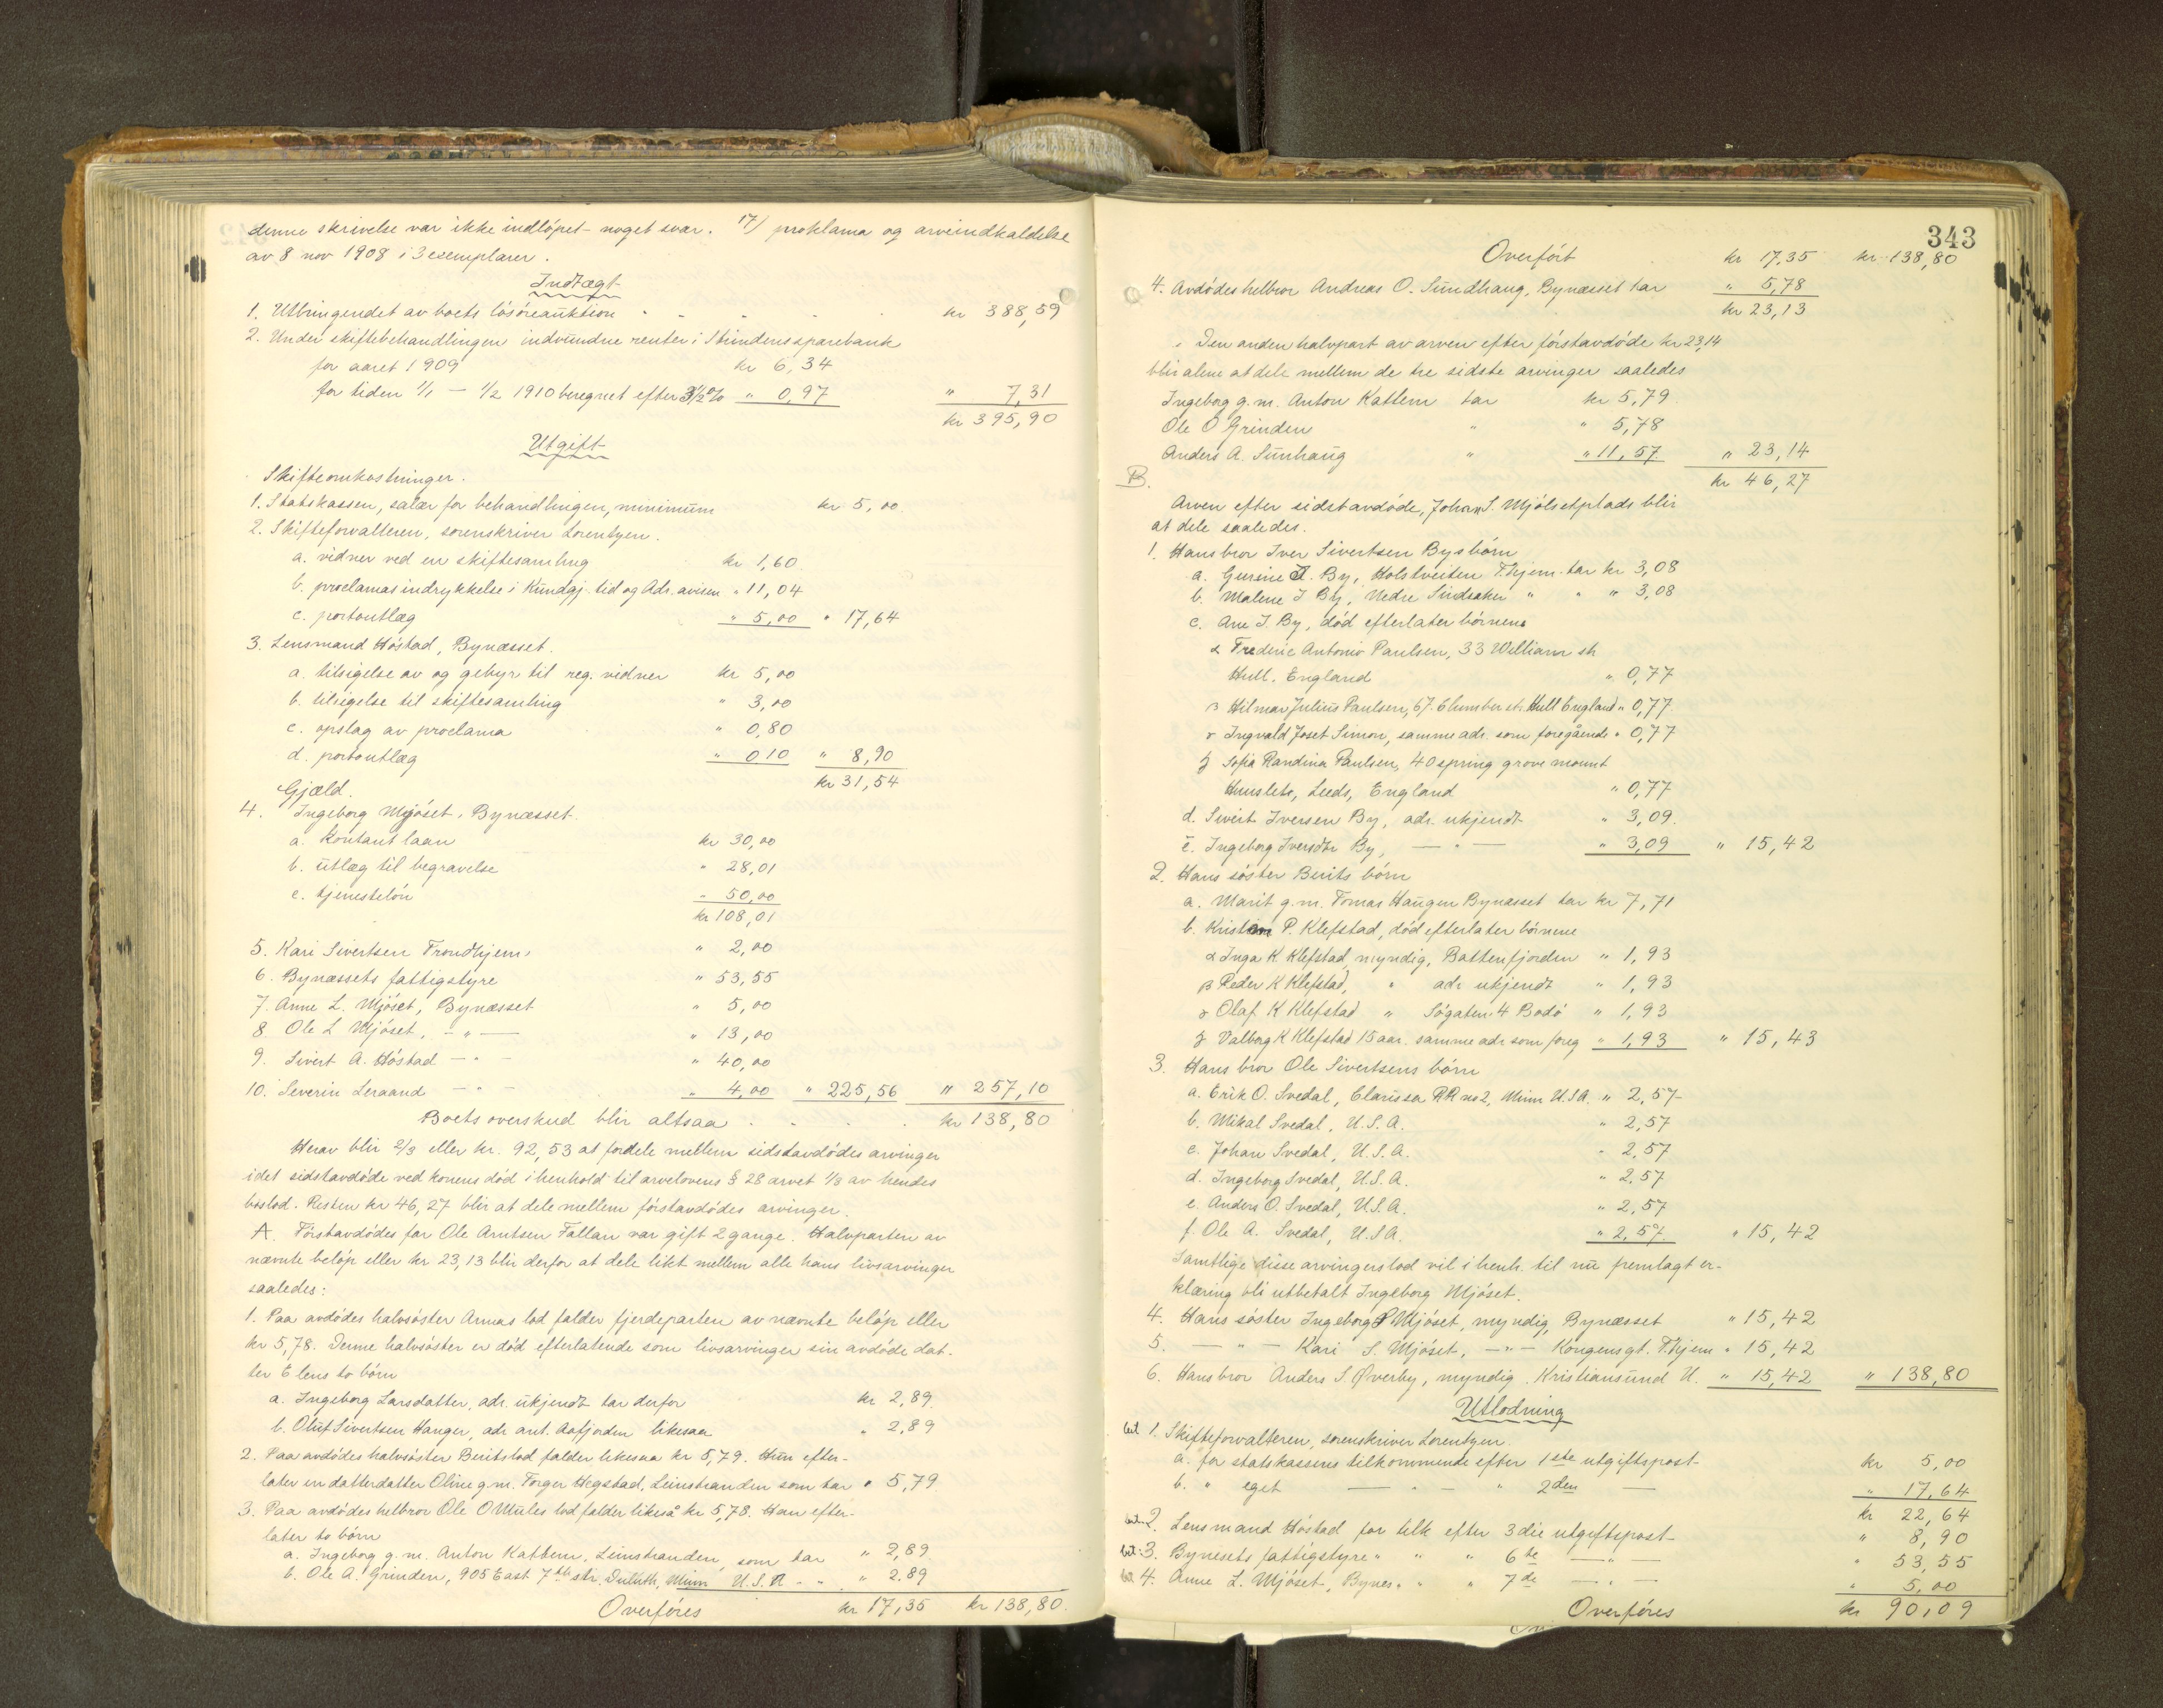 denne skrivelse var ikke indløpet noget svar. 17/ proklama og arveindkaldelse
av 8 nov 1908 i 3 exemplarer.
Indtægt
1. Utbringendet av boets løsøreauktion " " " " kr 388,59
2. Under skiftebehandlingen indvundne renter i Strindens sparebank
for aaret 1909 kr 6,34
for tiden 1/1 — 1/2 1910 beregnet efter 3 1/2 % " 0,97 " 7,31
kr 395,90
Utgift
Skifteomkostninger.
1. Statskassen, salær for behandlingen, minimum kr 5,00
2. Skifteforvalteren, sorenskriver Lorentzen.
a. vidner ved en skiftesamling kr 1,60
b. proclamas indrykkelse i Kundgj. tid og Adr. avisen " 11,04
c. portoutlæg " 5,00 " 17,64
3. Lensmand Høstad, Bynæsset.
a. tilsigelse av og gebyr til reg. vidner kr 5,00
b. tilsigelse til skiftesamling " 3,00
c. opslag av proclama " 0,80
d. portoutlæg " 0,10 " 8,90
kr 31,54
Gjæld.
4. Ingeborg Mjøset, Bynæsset.
a. kontant laan kr 30,00
b. utlæg til begravelse " 28,01
c. tjenesteløn " 50,00
kr 108,01
5. Kari Sivertsen Trondhjem, " 2,00
6. Bynæssets fattigstyre " 53,55
7. Anne L. Mjøset, Bynæsset " 5,00
8 Ole L Mjøset, — " — " 13,00
9. Sivert A. Høstad — " — " 40,00
10. Severin Leraand — " — " 4,00 " 225,56 " 257,10
Boets overskud blir altsaa . . . . kr 138,80
Herav blir 2/3 eller kr. 92,53 at fordele mellem sidstavdødes arvinger
idet sidstavdøde ved konens død i henhold til arvelovens § 28 arvet 1/3 av hendes
boslod. Resten kr 46,27 blir at dele mellem førstavdødes arvinger.
A. Førstavdødes far Ole Arntsen Fallan var gift 2 gange. Halvparten av
nævnte beløp eller kr 23,13 blir derfor at dele likt mellem alle hans livsarvinger
saaledes:
1. Paa avdødes halvsøster Annas lod falder fjerdeparten av nævnte beløp eller
kr 5,78. Denne halvsøster er død efterlatende som livsarvinger sin avdøde dat-
ter Elens to børn
a. Ingeborg Larsdatter, adr. ukjendt tar derfor kr 2,89
b. Oluf Sivertsen Hanger, adr. ant. Aafjorden likesaa " 2,89
2. Paa avdødes halvsøster Berits lod falder likesaa kr 5,79. Hun efter-
later en datterdatter Oline g.m. Torger Hegstad, Leinstranden som tar " 5,79
3. Paa avdødes helbror Ole O Mules lod falder likeså kr 5,78. Han efter-
later to børn
a. Ingeborg g. m. Anton Kattem, Leinstranden, som tar " 2,89.
b. Ole A. Grinden, 905 East 7th str. Duluth, Minn U.S.A — " " 2.89
Overføres kr 17,35 kr 138,80.
343
Overført kr 17,35 kr 138,80
4. Avdødes helbror Andreas O. Sundhaug, Bynæsset tar " 5,78
kr 23,13
Den anden halvpart av arven efter førstavdøde kr 23,14
blir alene at dele mellem de tre sidste arvinger saaledes
Ingeborg g. m. Anton Kattem tar kr 5,79
Ole O Grinden " " 5,78
Anders A. Sunhaug " " 11,57. " 23,14
kr 46,27
B.
Arven efter sidstavdøde, Johan S. Mjølsetplads blir
at dele saaledes.
1. Hans bror Iver Sivertsen Bys børn
a. Gurine I. By, Holstveiten T.hjem. tar kr 3,08
b. Malene I By, Nedre Sindsaker " " " 3,08
c. Ane I. By, død efterlater børnene
α Frederic Antonio Paulsen, 33 William str
Hull, England " 0,77
β Hilmar Julius Paulsen, 67. Clumber str. Hull England " 0,77.
γ Ingvald Joset Simon, samme adr. som foregående " 0,77
ζ Sofia Randina Paulsen, 40 spring grove mount
Hunslets, Leeds, England " 0,77
d. Sivert Iversen By, adr. ukjendt " 3,09.
e. Ingeborg Iversdtr By, — " — " 3,09 " 15,42
2. Hans søster Berits børn
a. Marit g. m. Tomas Haugen Bynæsset tar kr 7,71
b. Kristian P. Klefstad, død efterlater børnene
α Inga K. Klefstad, myndig, Battenfjorden " 1,93
β Peder K Klefstad, " adr ukjendt " 1,93
γ Olaf K Klefstad " Søgaten 4 Bodø " 1,93
ζ Valborg K Klefstad 15 aar. samme adr som foreg " 1,93 " 15,43
3. Hans bror Ole Sivertsens børn
a. Erik O. Svedal, Clarissa RR no 2, Minn U.S.A. " 2,57
b. Mikal Svedal, U.S.A. " 2,57
c. Johan Svedal, U.S.A. " 2,57
d. Ingeborg Svedal, U.S.A. " 2,57
e. Anders O. Svedal, U.S.A. " 2,57
f. Ole A. Svedal, U.S.A. " 2,57. " 15,42
Samtlige disse arvingers lod vil i henh. til nu fremlagt er-
klæring bli utbetalt Ingeborg Mjøset.
4. Hans søster Ingeborg S Mjøset, myndig, Bynæsset " 15,42
5. — " — Kari S. Mjøset, — " — Kongensgt. T.hjem " 15,42
6. Hans bror Anders S. Øverby, myndig, Kristiansund N. " 15,42 " 138,80
Utlodning
bet 1. Skifteforvalteren, sorenskriver Lorentzen.
a. for statskassens tilkommende efter 1ste utgiftspost kr 5,00
b. " eget — " — " 2den — " 17,64
kr 22,64
bet. 2. Lensmand Høstad for tilk efter 3die utgiftspost " 8,90
bet. 3. Bynesets fattigstyre " " " 6te — " — " 53,55
bet 4. Anne L. Mjøset, Bynes. " " " 7de — " — " 5,00
Overføres kr 90,09